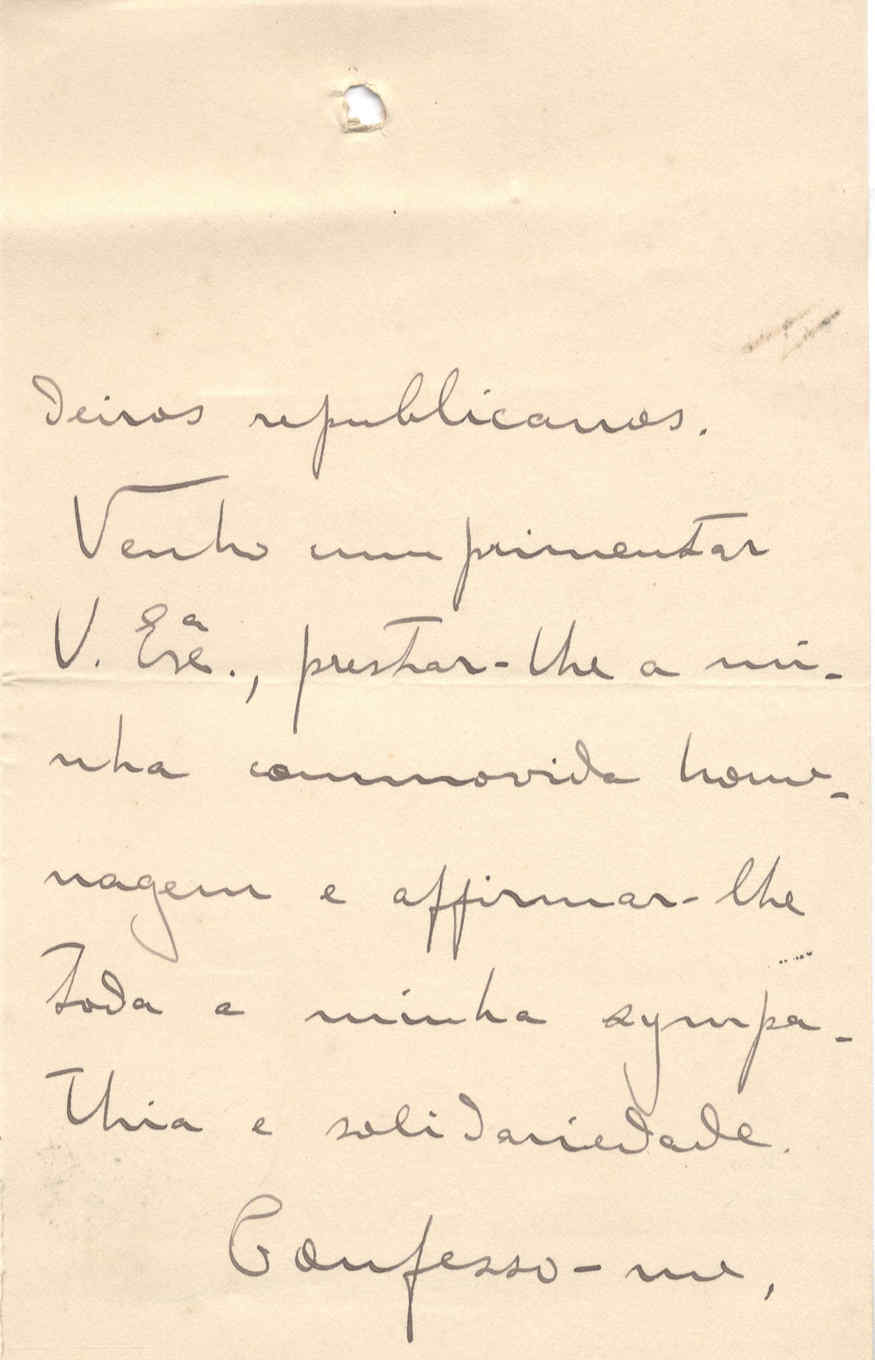 deiros republicanos.
Venho cumprimentar
V. Exª., prestar-lhe a mi-
nha commovida home-
nagem e affirmar-lhe
toda a minha sympa-
thia e solidariedade.
Confesso-me,